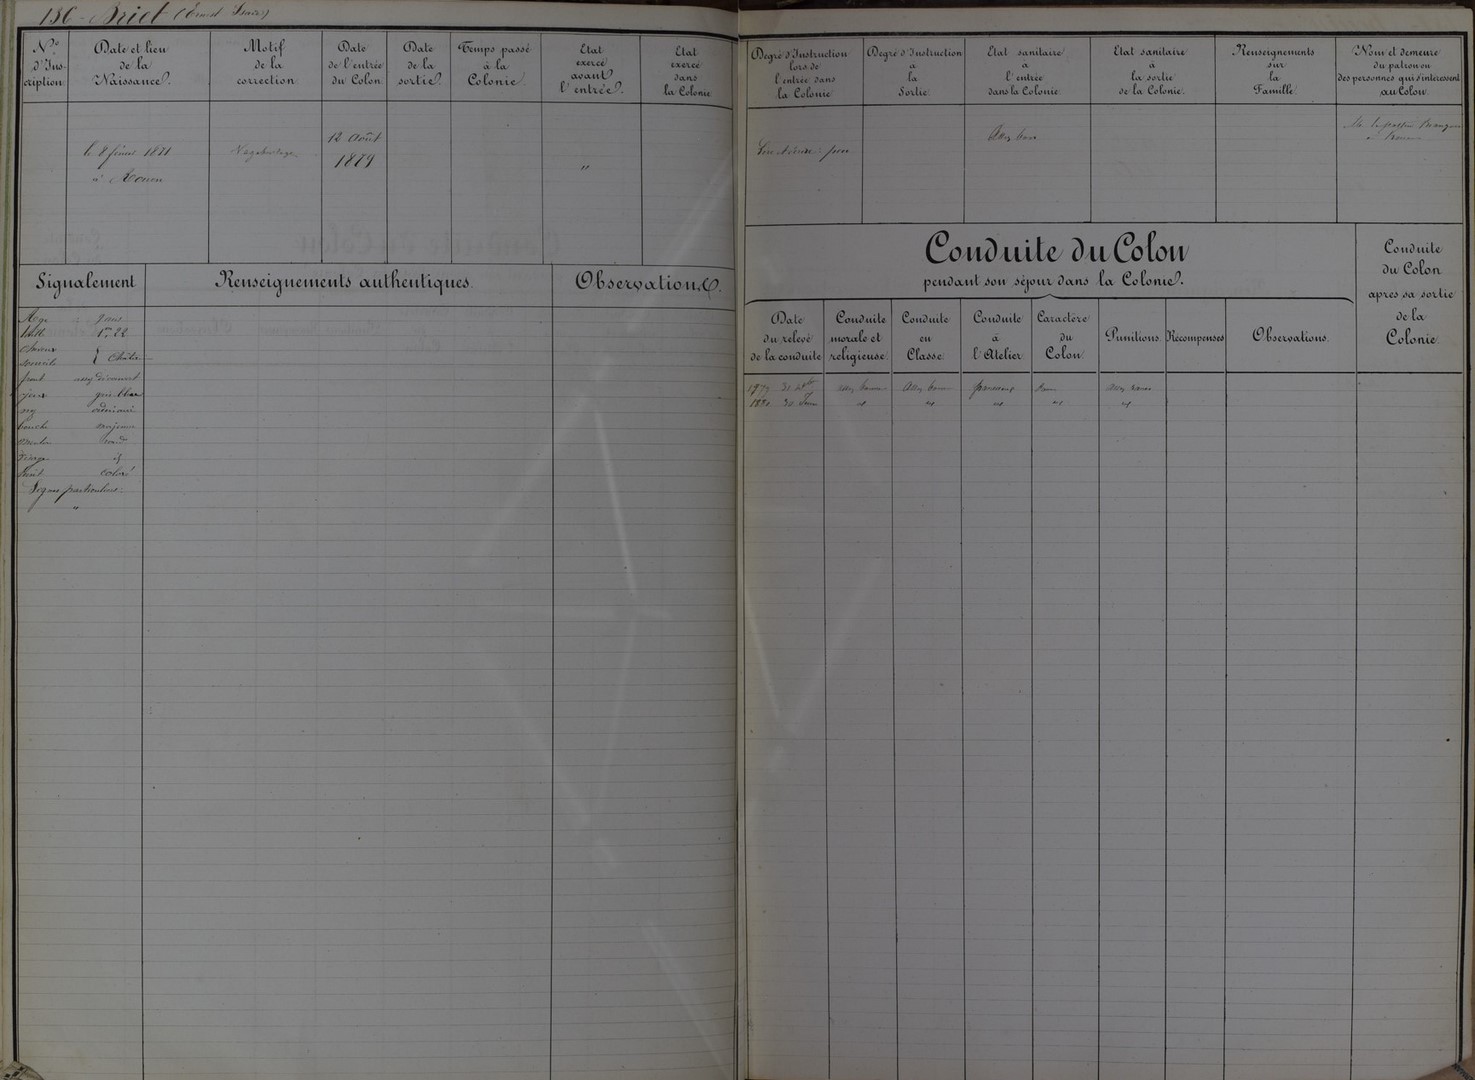 136 - Briet (Ernest
N°
d'Ins-
cription
Date et lieu
de la
Naissance.
Motif
de la
correction
Date
de l'entrée
du Colon
Date
de la
sortie.
Temps passé
à la
Colonie.
Etat
exercé
avant
l'entrée.
Etat
exercé
dans
la Colonie
le 8 février 1871
à Rouen
Vagabondage
12 Août
1879
"
Signalement
Renseignements authentiques.
Observations.
Age 9 ans
taille 1m 22
cheveux
sourcils } chât.
front assez découvert
yeux gris bleu
nez ordinaire
bouche moyenne
menton rond
visage id
teint coloré
Signes particuliers:
"
Degré d'Instruction
lors de
l'entrée dans
la Colonie
Degré d'Instruction
à
la
Sortie.
Etat sanitaire
à
l'entrée
dans la Colonie.
Etat sanitaire
à
la sortie
de la Colonie.
Renseignements
sur
la
Famille.
Nom et demeure
du patron ou
des personnes qui s'intéressent
au Colon.
Assez bon
Conduite du Colon
pendant son séjour dans la Colonie.
Conduite
du Colon
après sa sortie
de la
Colonie.
Date
du relevé
de la conduite
Conduite
morale et
religieuse.
Conduite
en
Classe.
Conduite
à
l'Atelier.
Caractère
du
Colon
Punitions.
Récompenses
Observations.
1879 31 assez bonne assez bonne paresseux assez rares
1880 30 id id id id id